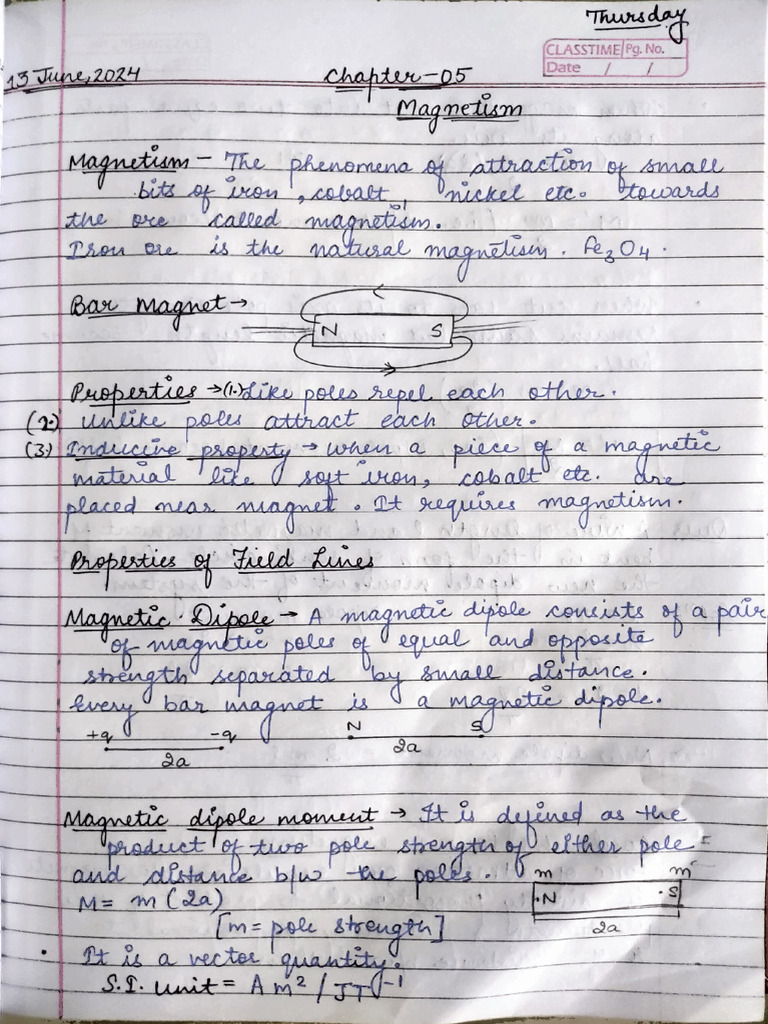 Thursday
CLASSTIME Pg. No.
Date / /
13 June, 2024 Chapter-05
Magnetism
Magnetism - The phenomena of attraction of small
bits of iron, cobalt, nickel etc. towards
the ore called magnetism.
Iron ore is the natural magnetism. Fe3O4.
Bar Magnet →
N S
Properties → (1.) Like poles repel each other.
(2.) Unlike poles attract each other.
(3.) Inducive property → when a piece of a magnetic
material like soft iron, cobalt etc. are
placed near magnet. It requires magnetism.
Properties of Field Lines
Magnetic Dipole → A magnetic dipole consists of a pair
of magnetic poles of equal and opposite
strength separated by small distance.
Every bar magnet is a magnetic dipole.
+q -q N S
2a 2a
Magnetic dipole moment → It is defined as the
product of two pole strength of either pole
and distance b/w the poles. m m
M = m (2a) N S
[m = pole strength] 2a
• It is a vector quantity.
S.I. unit = Am² / JT⁻¹